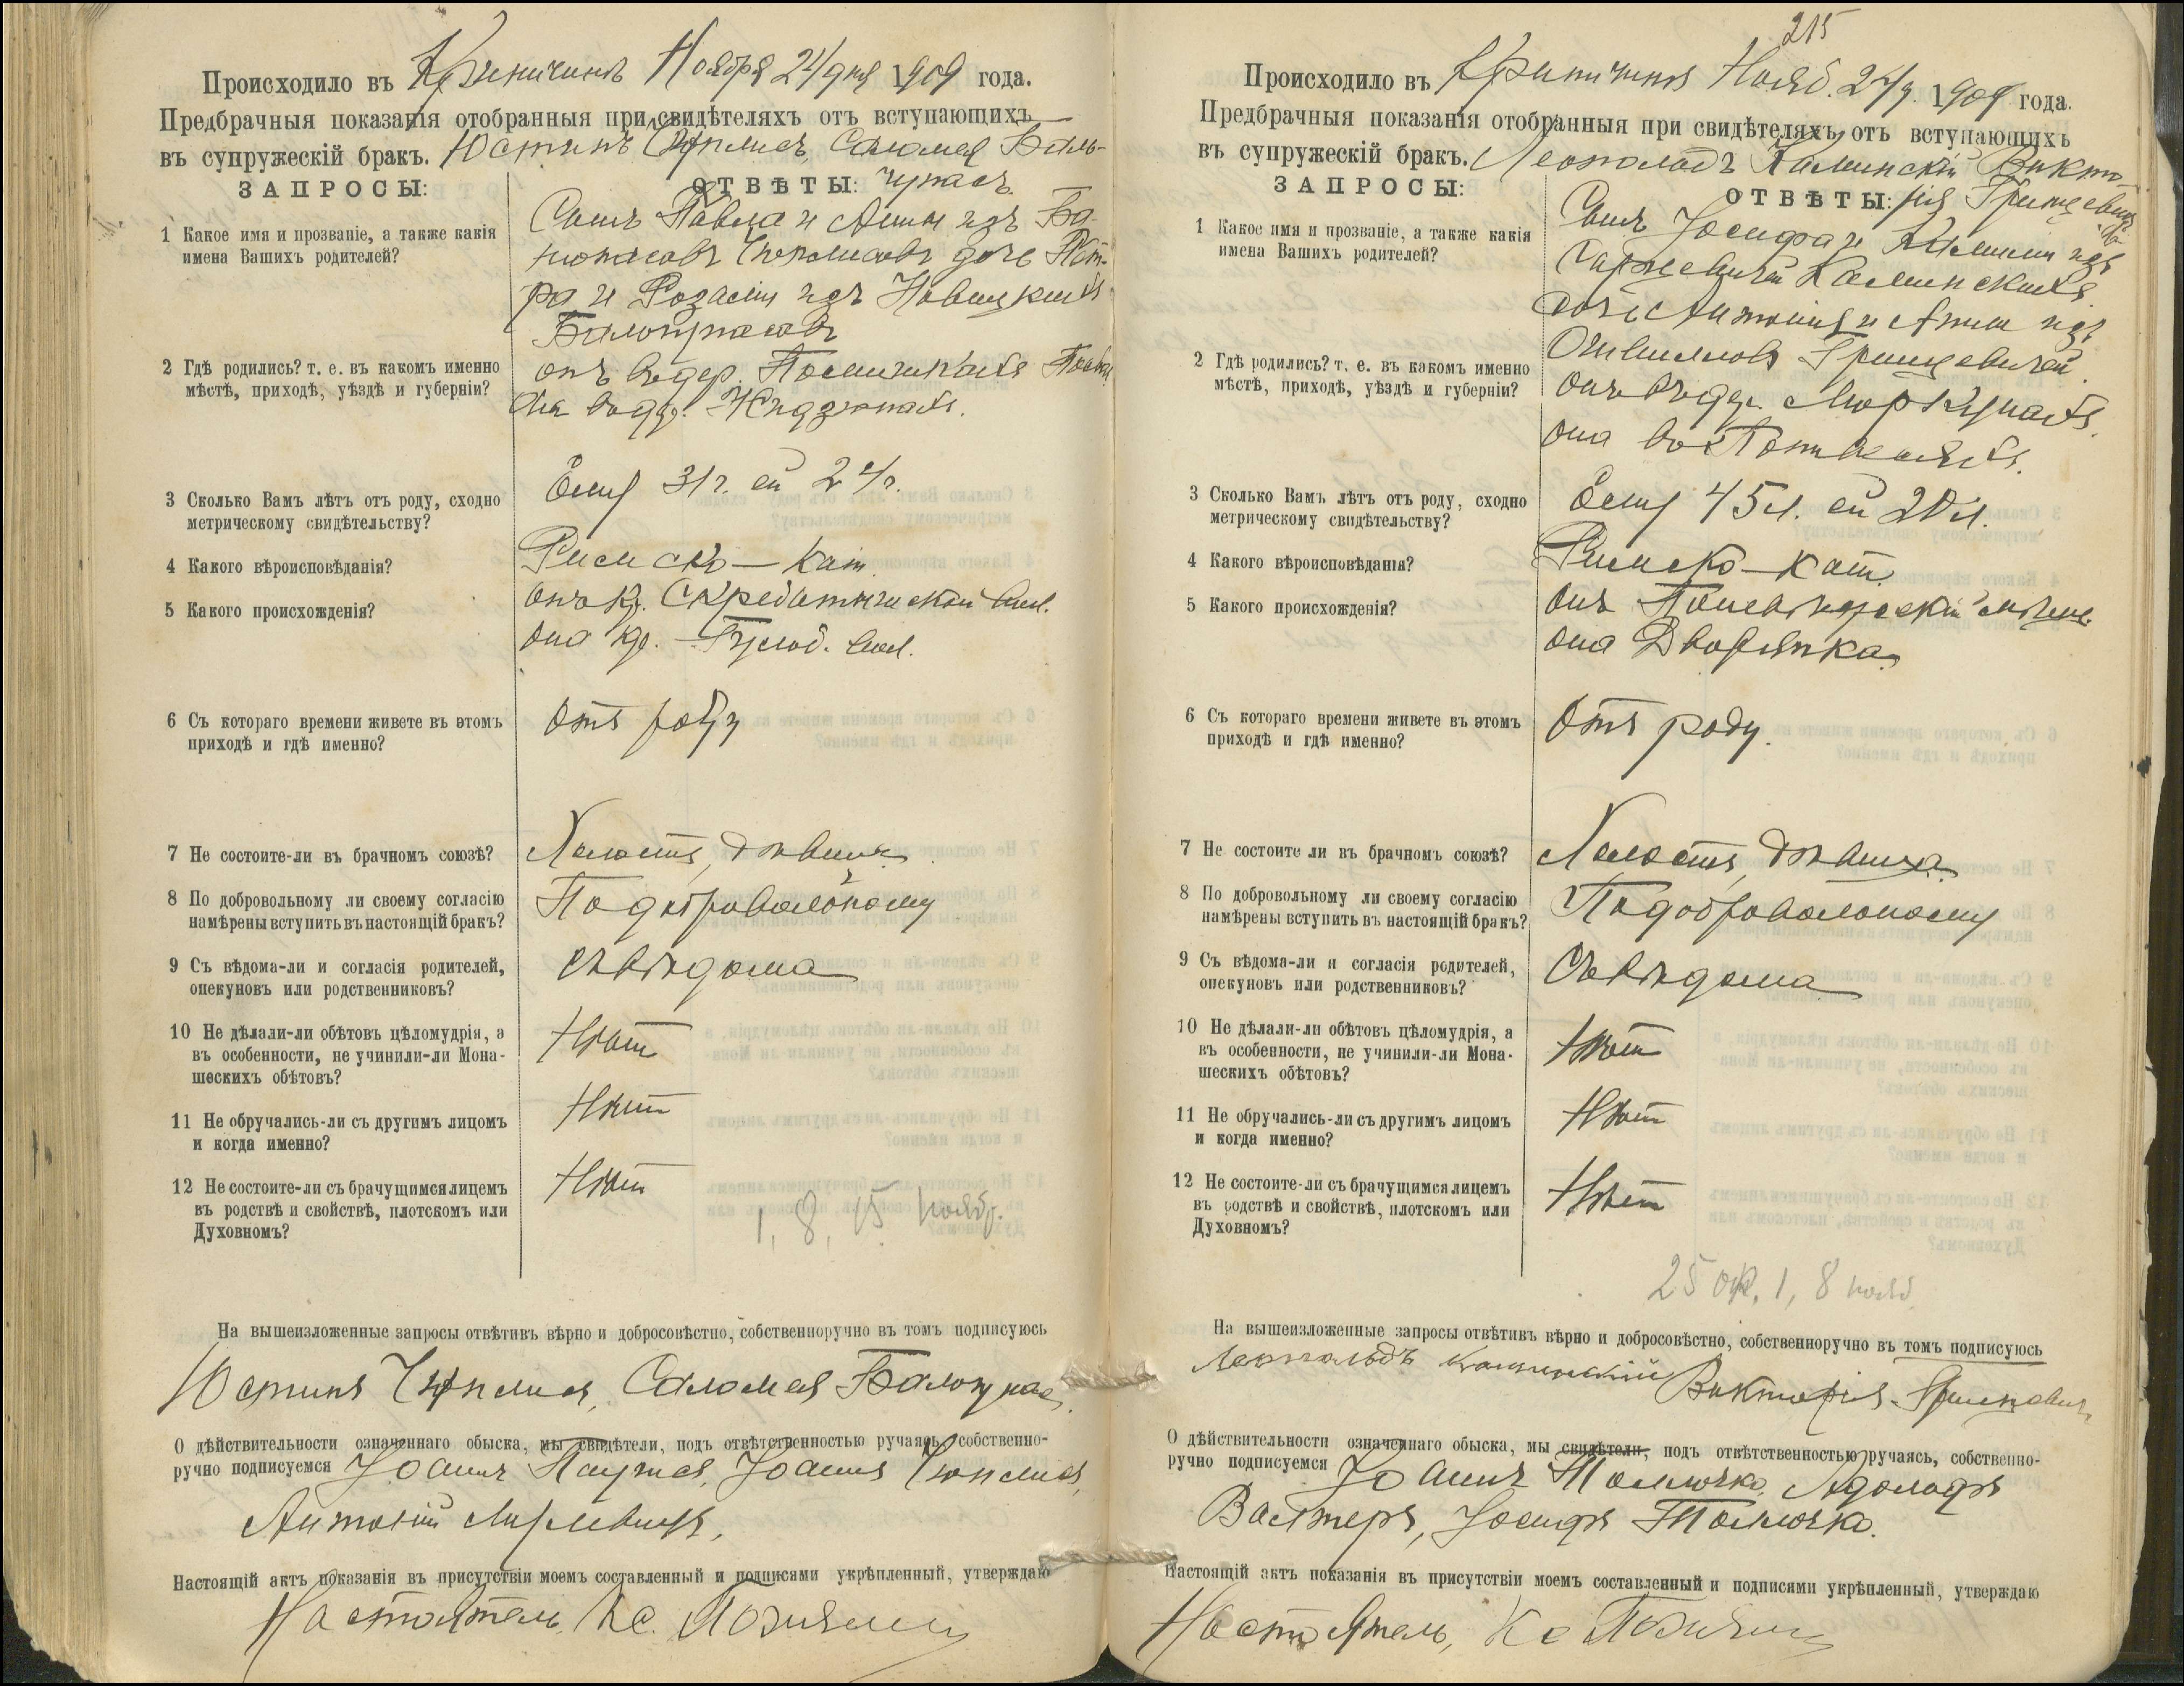 Происходило въ Криничинѣ Ноября 24 дня 1909 года.
Предбрачныя показанія отобранныя при свидѣтеляхъ отъ вступающихъ
въ супружескій бракъ. Юстинъ Саломея Баль-
ЗАПРОСЫ: ОТВѢТЫ: чунасъ.
1 Какое имя и прозваніе, а также какія
имена Вашихъ родителей?
Сынъ Павла и Анны изъ
дочь Пет-
ра и Розаліи изъ Новицкихъ
2 Гдѣ родились? т. е. въ какомъ именно
мѣстѣ, приходѣ, уѣздѣ и губерніи?
онъ въ дер.
она въ дер.
3 Сколько Вамъ лѣтъ отъ роду, сходно
метрическому свидѣтельству?
Ему 31 г. ей 24 г.
4 Какого вѣроисповѣданія?
Римско-Кат.
5 Какого происхожденія?
онъ кр. вол.
она кр. вол.
6 Съ котораго времени живете въ этомъ
приходѣ и гдѣ именно?
Отъ роду
7 Не состоите-ли въ брачномъ союзѣ?
Холостъ, дѣвица
8 По добровольному ли своему согласію
намѣрены вступить въ настоящій бракъ?
По добровольному
9 Съ вѣдома-ли и согласія родителей,
опекуновъ или родственниковъ?
Съ вѣдома
10 Не дѣлали-ли обѣтовъ цѣломудрія, а
въ особенности, не учинили-ли Мона-
шескихъ обѣтовъ?
Нѣтъ
11 Не обручались-ли съ другимъ лицомъ
и когда именно?
Нѣтъ
12 Не состоите-ли съ брачущимся лицемъ
въ родствѣ и свойствѣ, плотскомъ или
Духовномъ?
Нѣтъ
1, 8, 15 нояб.
На вышеизложенные запросы отвѣтивъ вѣрно и добросовѣстно, собственноручно въ томъ подписуюсь
Юстинъ Саломея
О дѣйствительности означеннаго обыска, мы свидѣтели, подъ отвѣтственностью ручаясь, собственно-
ручно подписуемся Іоаннъ Іоаннъ
Антоній
Настоящій актъ показанія въ присутствіи моемъ составленный и подписями укрѣпленный, утверждаю
Настоятель, Кс.
215
Происходило въ Нояб. 24 д. 1909 года.
Предбрачныя показанія отобранныя при свидѣтеляхъ отъ вступающихъ
въ супружескій бракъ. Леопольдъ Каминскій Викто-
ЗАПРОСЫ: ОТВѢТЫ: рія Гринцевичъ
1 Какое имя и прозваніе, а также какія
имена Вашихъ родителей?
Сынъ Іосифа и изъ
Каминскихъ
дочь Антонія и Анны изъ
Гринцевичей
2 Гдѣ родились? т. е. въ какомъ именно
мѣстѣ, приходѣ, уѣздѣ и губерніи?
Онъ въ дер.
она въ
3 Сколько Вамъ лѣтъ отъ роду, сходно
метрическому свидѣтельству?
Ему 45 л. ей 20 л.
4 Какого вѣроисповѣданія?
Римско-Кат.
5 Какого происхожденія?
Онъ
она Дворянка
6 Съ котораго времени живете въ этомъ
приходѣ и гдѣ именно?
Отъ роду.
7 Не состоите ли въ брачномъ союзѣ?
Холостъ, дѣвица
8 По добровольному ли своему согласію
намѣрены вступить въ настоящій бракъ?
По добровольному
9 Съ вѣдома-ли и согласія родителей,
опекуновъ или родственниковъ?
Съ вѣдома
10 Не дѣлали-ли обѣтовъ цѣломудрія, а
въ особенности, не учинили-ли Мона-
шескихъ обѣтовъ?
Нѣтъ
11 Не обручались-ли съ другимъ лицомъ
и когда именно?
Нѣтъ
12 Не состоите-ли съ брачущимся лицемъ
въ родствѣ и свойствѣ, плотскомъ или
Духовномъ?
Нѣтъ
25 ок. 1, 8 нояб
На вышеизложенные запросы отвѣтивъ вѣрно и добросовѣстно, собственноручно въ томъ подписуюсь
Леопольдъ Каминскій Викторія Гринцевичъ
О дѣйствительности означеннаго обыска, мы свидѣтели, подъ отвѣтственностью ручаясь, собственно-
ручно подписуемся Іоаннъ Толлочко, Адольфъ
Валтеръ, Іосифъ Толлочко.
Настоящій актъ показанія въ присутствіи моемъ составленный и подписями укрѣпленный, утверждаю
Настоятель, Кс